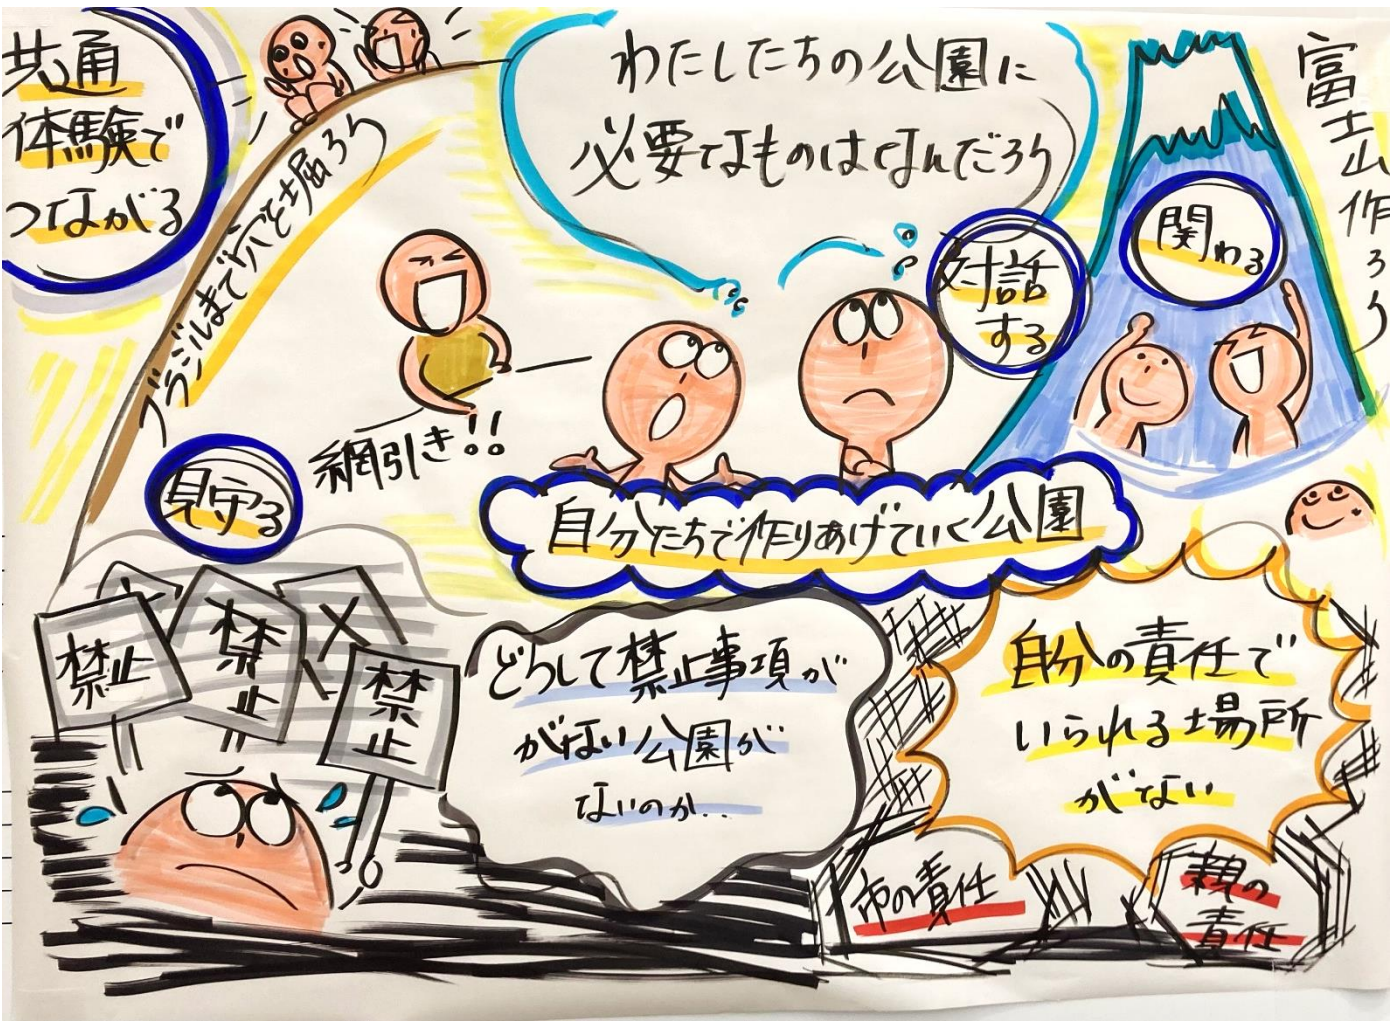 共通
体験で
つながる
ブラジルまで穴を掘ろう
わたしたちの公園に
必要なものはなんだろう
富士山作ろう
関わる
対話
する
綱引き!!
見守る
自分たちで作りあげていく公園
禁止
禁止
禁止
どうして禁止事項が
がない公園が
ないのか..
自分の責任で
いられる場所
がない
市の責任
親の
責任